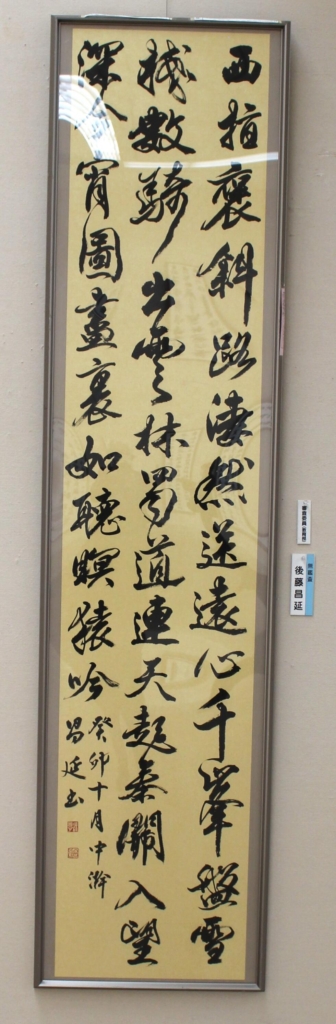 西指褒斜路淒然送遠心千峯盤雪
棧數騎出雲林蜀道連天起秦關入望
深今宵圖畫裏如聽暝猿吟
癸卯十月中澣
昌延書
後藤昌延